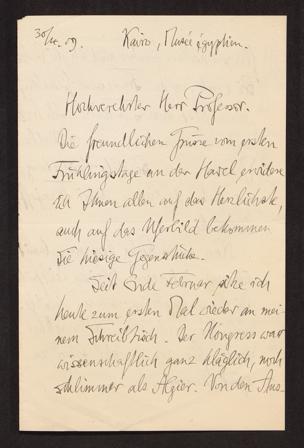 30/IV. 09. Kairo, Musée égyptien.
Hochverehrter Herr Professor.
Die freundlichen Grüsse vom ersten
Frühlingstage an der Havel erwidere
ich Ihnen allen auf das Herzlichste,
auch auf das Uferbild bekommen
Sie hiesige Gegenstücke.
Seit Ende Februar sitze ich
heute zum ersten Mal wieder an mei-
nem Schreibtisch. Der Kongress war
wissenschaftlich ganz kläglich, noch
schlimmer als Algier. Von den Aus-